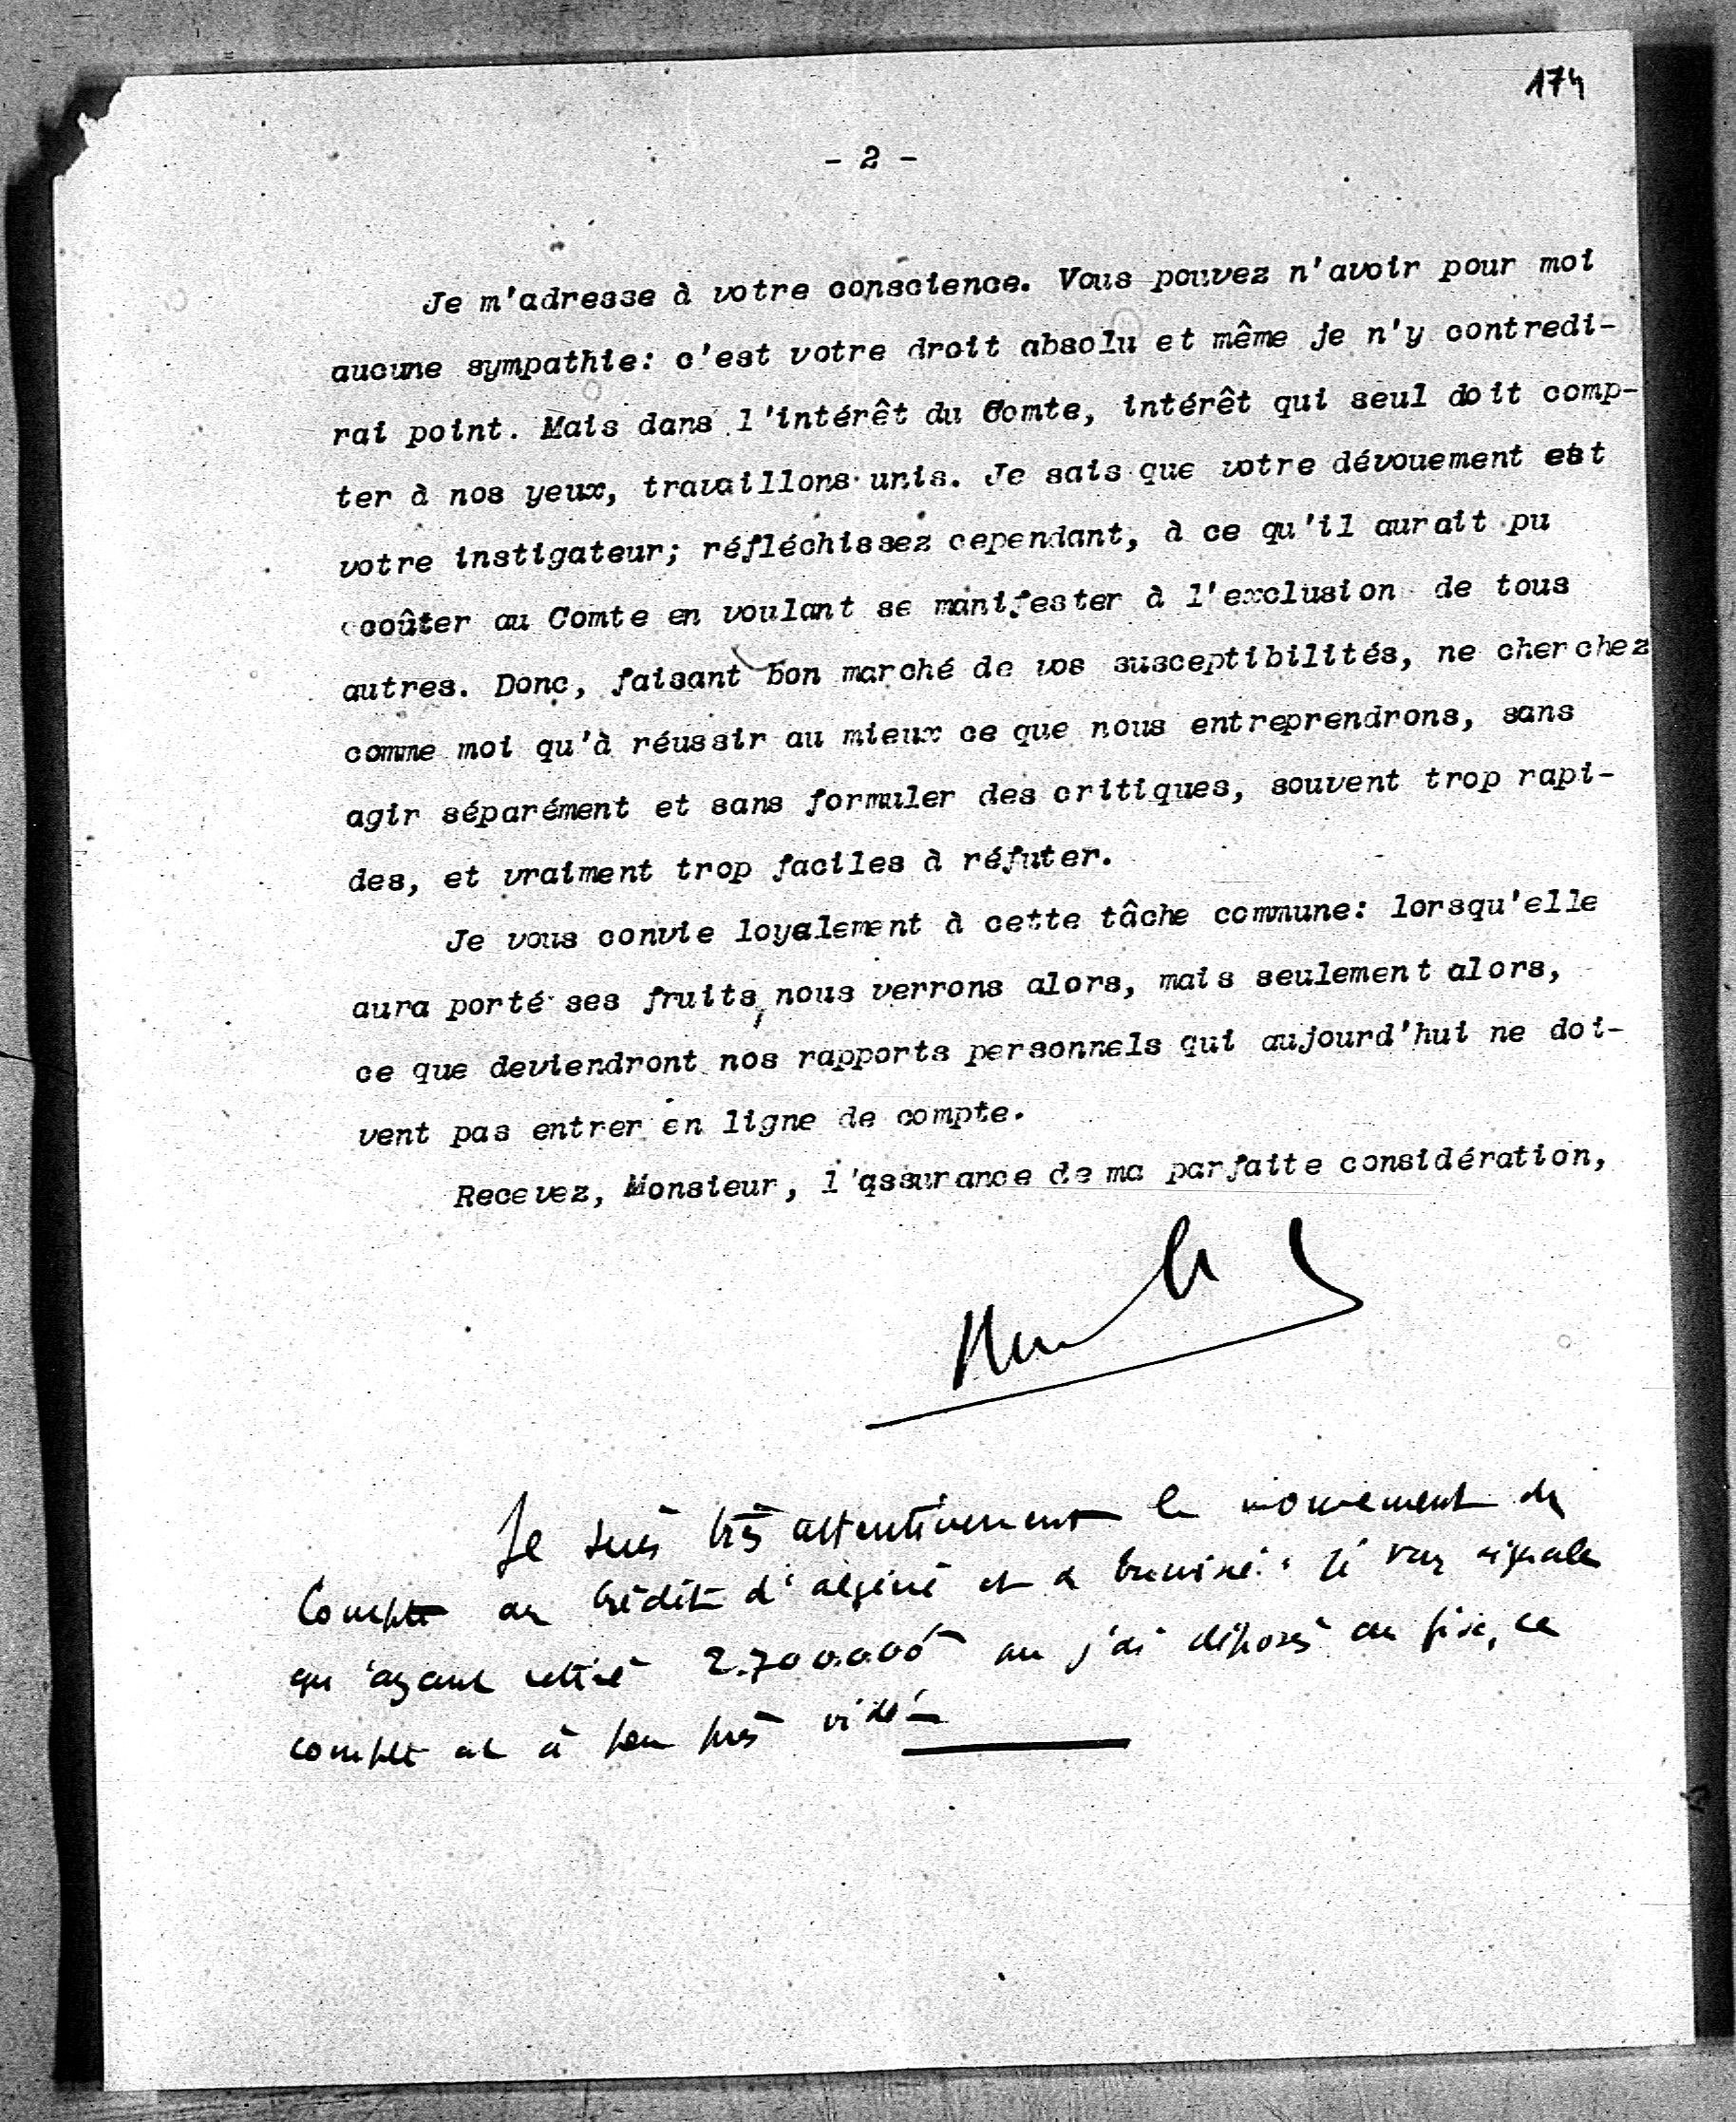 174
- 2 -
Je m'adresse à votre conscience. Vous pouvez n'avoir pour moi
aucune sympathie: c'est votre droit absolu et même je n'y contredi-
rai point. Mais dans l'intérêt du Comte, intérêt qui seul doit comp-
ter à nos yeux, travaillons unis. Je sais que votre dévouement est
votre instigateur; réfléchissez cependant, à ce qu'il aurait pu
coûter au Comte en voulant se manifester à l'exclusion de tous
autres. Donc, faisant bon marché de vos susceptibilités, ne cherchez
comme moi qu'à réussir au mieux ce que nous entreprendrons, sans
agir séparément et sans formuler des critiques, souvent trop rapi-
des, et vraiment trop faciles à réfuter.
Je vous convie loyalement à cette tâche commune: lorsqu'elle
aura porté ses fruits, nous verrons alors, mais seulement alors,
ce que deviendront nos rapports personnels qui aujourd'hui ne doi-
vent pas entrer en ligne de compte.
Recevez, Monsieur, l'assurance de ma parfaite considération,
Je suis très attentivement le mouvement du
Compte au Crédit d'Algérie et de Tunisie. Je vous signale
qu'ayant retiré 2.700.000 que j'ai déposés au fisc, ce
compte est à peu près vidé